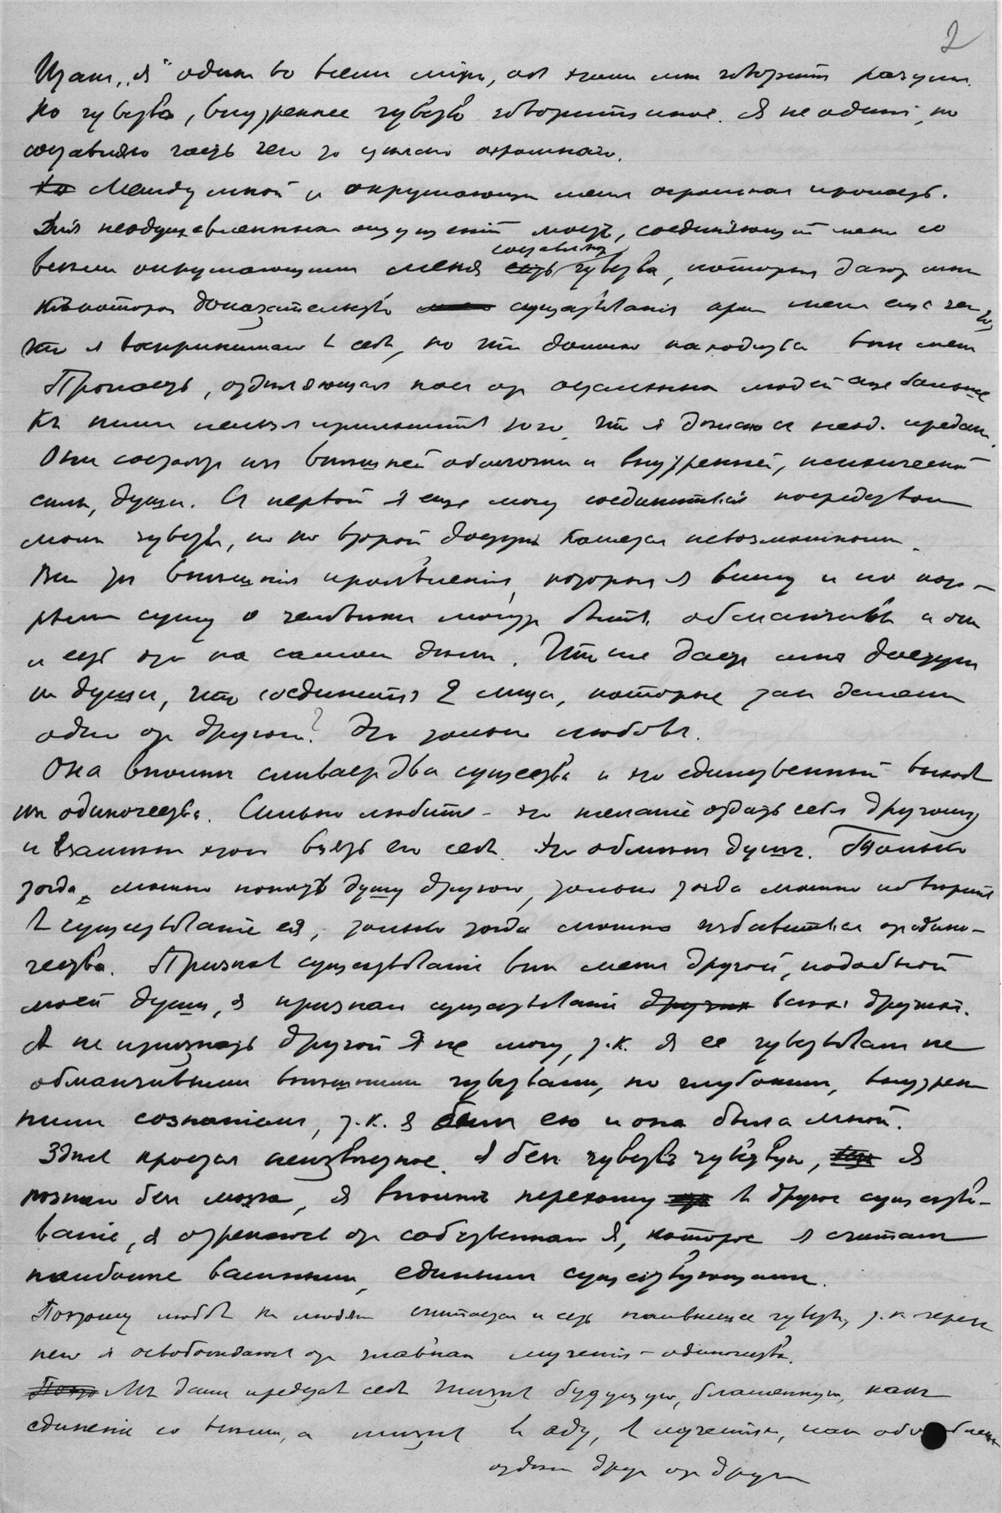 2
Итак, „я" один во всем мире, об этом мне говорит разум.
Но чувство, внутреннее чувство говорит иное. Я не один, но
составляю часть чего то целого огромного.
Между мной и окружающим меня огромная пропасть.
Для неодушевленных ощущений мост, соединяющий меня со
всеми окружающими меня составляют чувства, которыя дают мне
некоторыя доказательства существования вне меня еще чего то
что я воспринимаю в себе, но что должно находиться вне меня
Пропасть, отделяющая нас от остальных людей еще больше
Къ ним нельзя применить того, что я допускаю неод. предм.
Они состоят из внешней оболочки и внутренней, психической
силы, души. С первой я еще могу соединиться посредством
моих чувств, но ко второй доступ кажется невозможным.
Все те внешнiя проявленiя, которыя я вижу и по кото-
рым сужу о человеке могут быть обманчивы и он
и есть не на самом деле. Что же дает мне доступ
к душе, что соединяет 2 лица, которые так далеки
один от другого? Это только любовь.
Она вполне сливает два существа и это единственный выход
из одиночества. Сильно любить - это желание отдать себя другому
и взамен этого взять его себе. Это обмен душ. Только
тогда можно понять душу другого, только тогда можно поверить
в существованiе ея, только тогда можно избавиться от одино-
чества. Признав существованiе вне меня другой, подобной
моей души, я признаю существованiе всех других.
А не признать другой я не могу, т.к. я ее чувствовал не
обманчивыми внешними чувствами, но глубоким, внутрен
ним сознанiем, т.к. я был ею и она была мной.
Здесь простая неизвестное. Я без чувств чувствую, я
познаю без мозга, я вполне перехожу в другое существо-
ванiе, я отрекаюсь от собственнаго я, которое я считаю
наиболее важным, единым существующим.
Потому любовь къ людям считается и есть наивысшее чувство, т.к. через
него я освобождаюсь от главнаго мученiя - одиночества.
Мы даже представ. себе жизнь будущую, блаженную, как
единенiе со всеми, а жизнь в аду, в мученiях, как
отдел. друг от друга